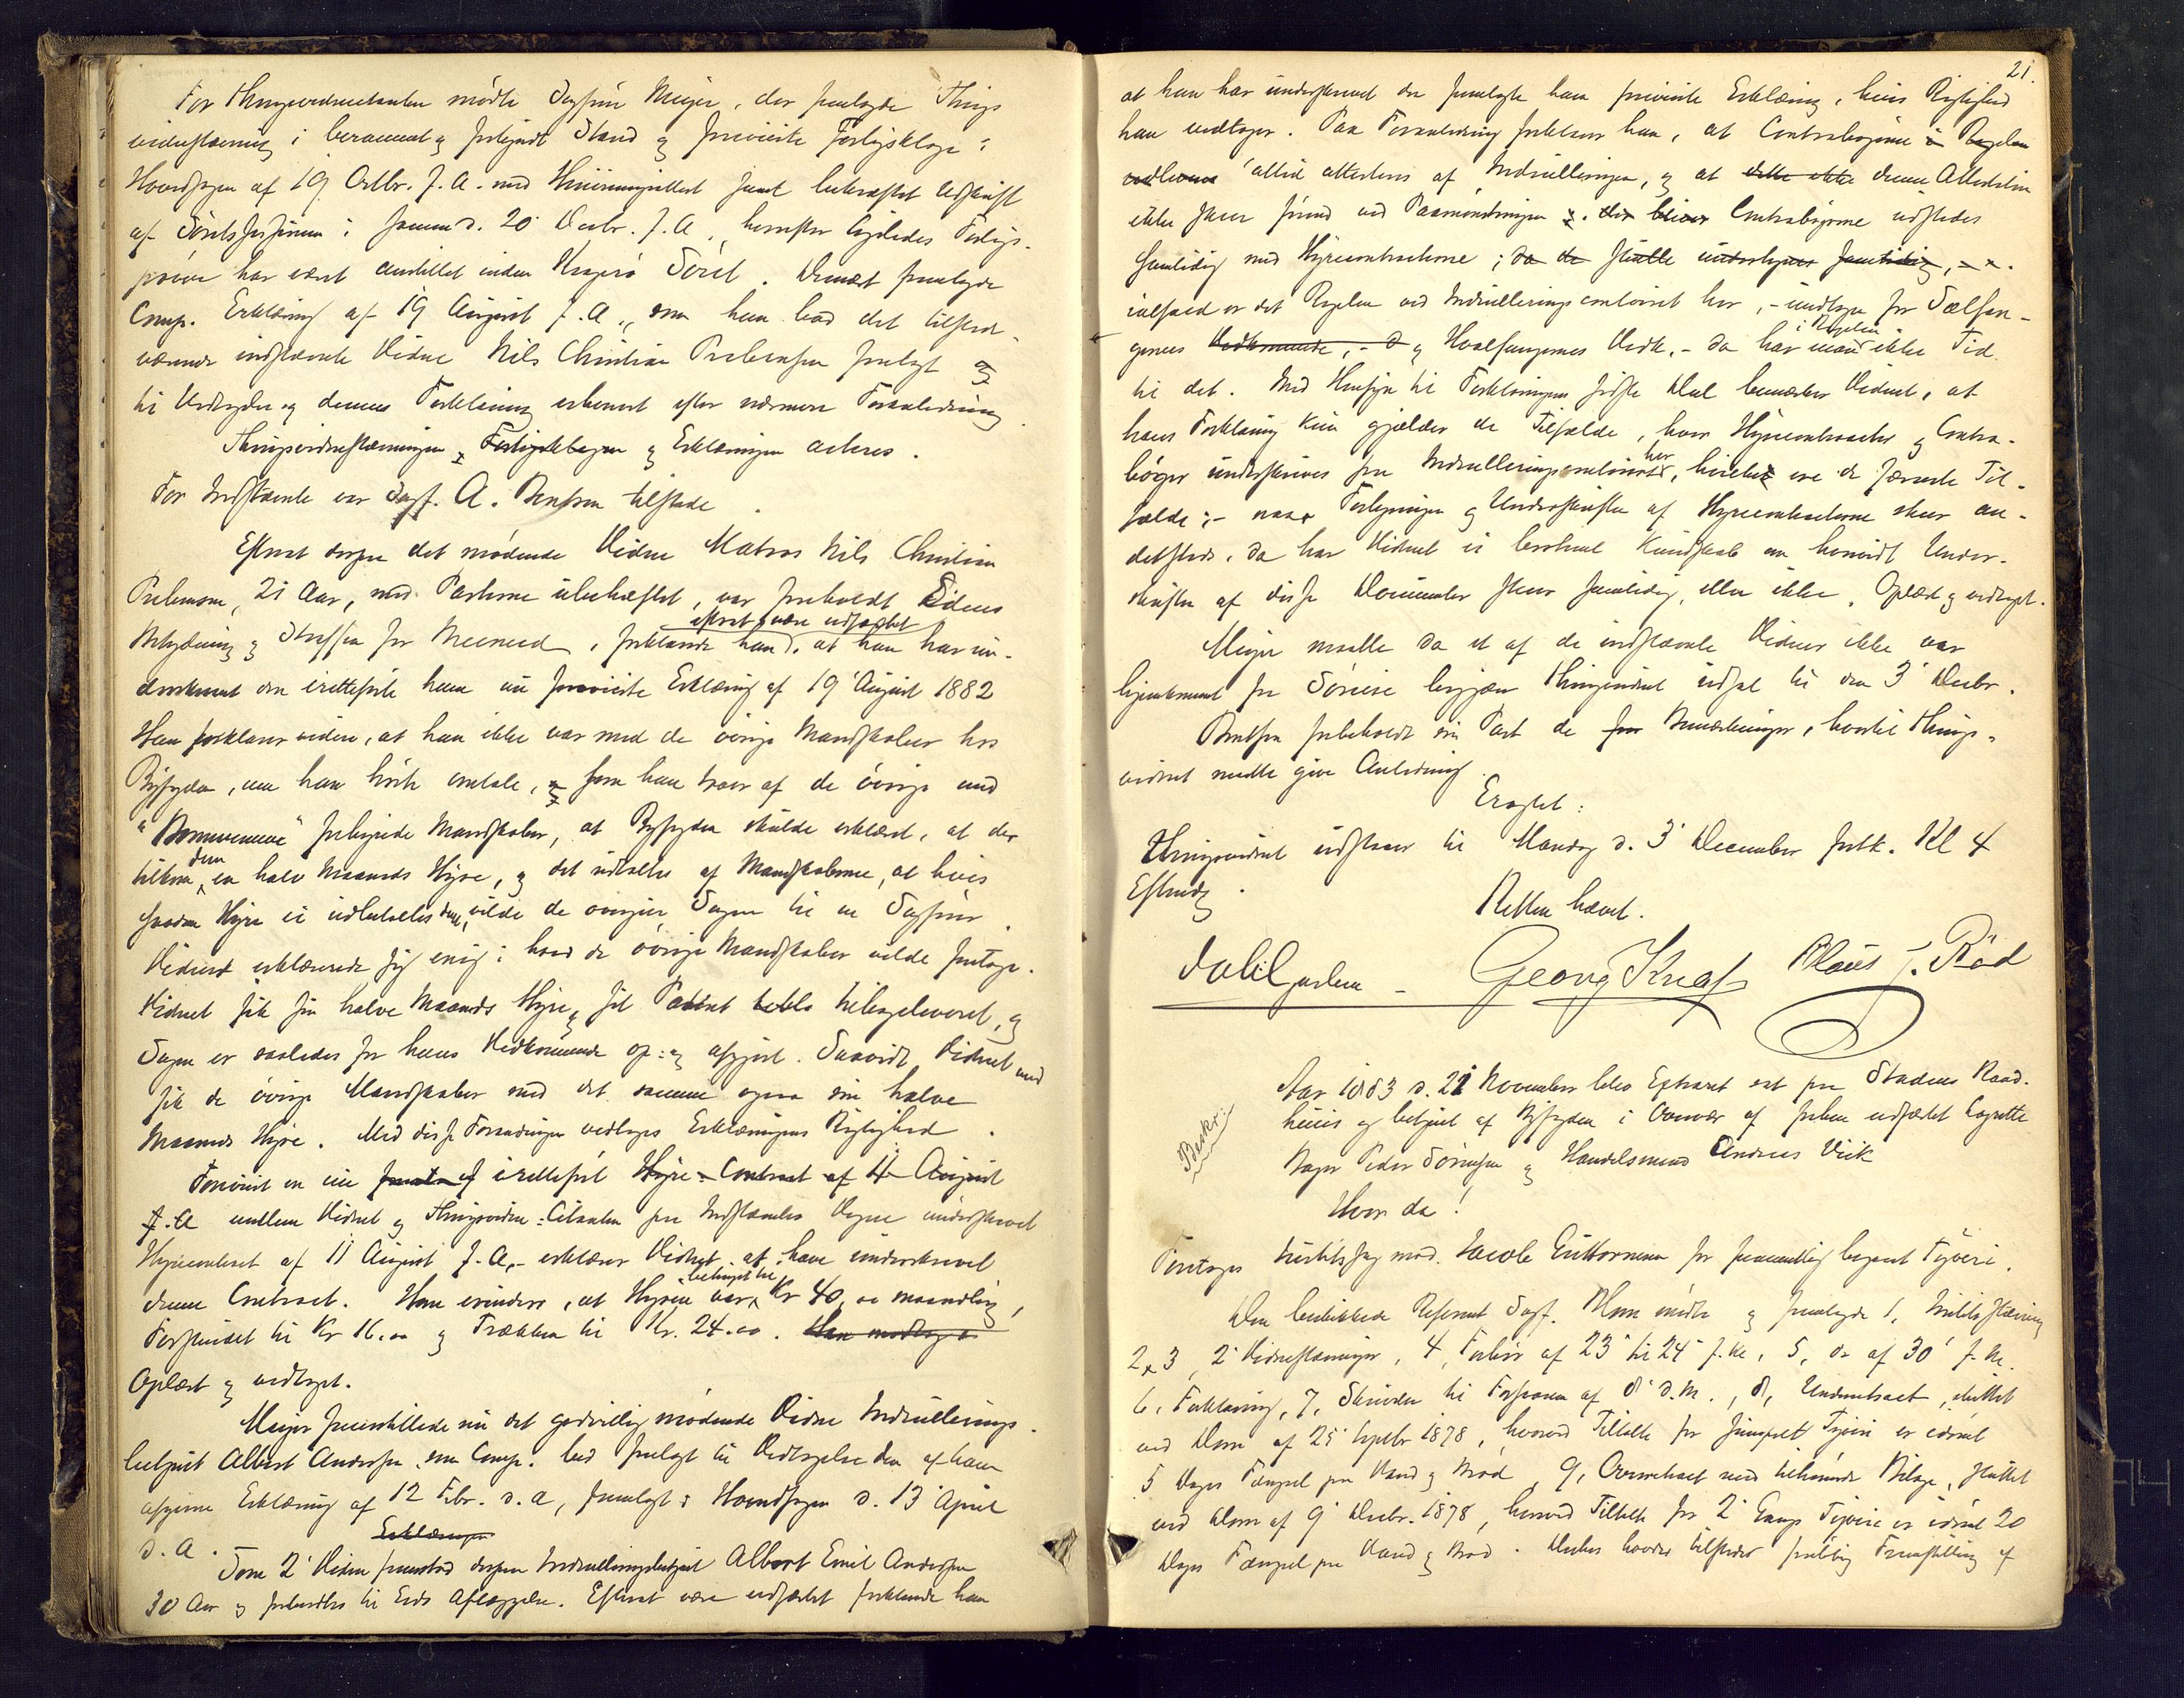 For Thingsvidnecitanten mødte Sagfører Meyer, der fremlagde Things
vidnestævning i berammet og forkyndt Stand og foreviste Forligsklage i
Hovedsagen af 19 Octbr. f. A. med Henvisningsattest samt bekræftet Udskrift
af Søretsforhøret i samme d. 20 Decbr. f. A., hvorefter lovlig Forligs-
prøve har været anstillet inden Kragerø Søret. Dernæst fremlagde
Comp. Erklæring af 19 August f. A., som han bad det tilstede-
værende indstævnte Vidne Nils Christian Prebensen forelagt
til Vedtagelse og dennes Forklaring erhvervet efter nærmere Foranledning.
Thingsvidnestævningen, Forligsklagen og Erklæringen acteres.
For Indstævnte var Sagf. A. Bentsen tilstede.
Efterat derpaa det mødende Vidne Matros Nils Christian
Prebensen, 21 Aar, med Parterne ubeslægtet, var foreholdt Edens
efterat være edfæstet
Betydning og Straffen for Meeneed, forklarede han, at han har un-
derskrevet den iretteførte ham nu foreviste Erklæring af 19 August 1882
Han forklarer videre, at han ikke var med de øvrige Mandskaber hos
Byfogden, men han hørte omtale, som han troer af de øvrige med
"Bienvenue" forhyrede Mandskaber, at Byfogden skulde erklæret, at der
dem
tilkom en halv Maaneds Hyre, og det udtaltes af Mandskaberne, at hvis
saadan Hyre ei udbetaltes dem, vilde de overgive Sagen til en Sagfører.
Vidnet erklærede sig enig i hvad de øvrige Mandskaber vilde foretage.
Vidnet fik sin halve Maaneds Hyre, fik tilbageleveret, og
Sagen er saaledes for hans Vedkommende op- og afgjort. Saavidt Vidnet ved
fik de øvrige Mandskaber med det samme ogsaa sin halve
Maaneds Hyre. Med disse Forandringer vedtages Erklæringens Rigtighed.
Forevist en nu iretteført Hyre-Contract af 11 August
f. A mellem Vidnet og Thingsvidne-Citanten paa Indstævntes Vegne underskrevet
Hyrecontract af 11 August f. A., erklærer Vidnet at have underskrevet
betinget til
denne Contract. Han erindrer, at Hyren var Kr 40,00 maanedlig,
Forskuddet til Kr 16.00 og Trækken til Kr. 24.00. Han modtog
Oplæst og vedtaget.
Meyer fremstillede nu det godvillig mødende Vidne Indrullerings-
betjent Albert Andersen som Comp. bad forelagt til Vedtagelse den af ham
afgivne Erklæring af 12 Febr. d. a, fremlagt i Hovedsagen d. 13 April
d. A. Erklæringen
Som 2' Vidne fremstod derpaa Indrulleringsbetjent Albert Emil Andersen
30 Aar og foreholdtes til Eds Aflæggelse. Efterat være edfæstet forklarede han
21.
at han har underskrevet den fremlagte ham foreviste Erklæring, hvis Rigtighed
han vedtager. Paa Foranledning forklarer han, at Contrabøgerne i Regelen
altid attesteres af Indrulleringen, og at dette ikke denne Attestation
ikke skeer førend ved Paamønstringen. Contrabøgerne udstedes
samtidig med Hyrecontracterne; da de skulle underskrives samtidig,
ialfald er det Regelen ved Indrulleringscontoiret her, - undtagen for Sælfan-
i Regelen
gernes Vedkommende, - og Hvalfangernes Vedk. - da har man ikke Tid
til det. Med Hensyn til Forklaringens sidste Deel bemærker Vidnet, at
hans Forklaring kun gjælder de Tilfælde, hvor Hyrecontracter og Contra-
her
bøger underskrives paa Indrulleringscontoiret, hvilket ere de færreste Til-
fælde; - naar Forhyringen og Underskriften af Hyrecontracterne skeer an-
detsteds, da har Vidnet ei bestemt Kundskab om hvorvidt Under-
skriften af disse Documenter skeer samtidig, eller ikke. Oplæst og vedtaget.
Meyer maatte da et af de indstævnte Vidner ikke var
hjemkommet fra Søreise begjære Thingsvidnet udsat til den 3' Decbr.
Bentsen forbeholdt sin Part de Bemærkninger, hvortil Things-
vidnet maatte give Anledning.
Eragtet:
Thingsvidnet udstaaer til Mandag d. 3' December førstk. Kl 4
Eftmdg.
Retten hævet.
Georg Knaf Klaus J. Rød
Beskr:
Aar 1883 d. 21 November blev Extraret sat paa Stadens Raad-
huus og betjent af Byfogden i Overvær af forhen edfæstet Lagrette
Bager Peder Sørensen og Handelsmand Andreas Viik
Hvor da!
Foretages Justitssag mod Jacob Guttormsen for formentlig begaaet Tyveri.
Den beskikkede Referent Sagf. Blom mødte og fremlagde 1, Justitsstævning
2 & 3, 2 Vidnestævninger, 4, Forhør af 23' til 24' f. M., 5, do af 30' f. M.
6, Forklaring, 7, Skrivelse til Forsvaren af 8' d. M., 8, Underretsact, sluttet
ved Dom af 25' Septbr 1878, hvorved Tiltalte for simpelt Tyveri er idømt
5 Dages Fængsel paa Vand og Brød, 9, Overretsact med tilhørende Bilage, sluttet
ved Dom af 9' Decbr. 1878, hvorved Tiltalte for 2' Gang Tyveri er idømt 20
Dages Fængsel paa Vand og Brød. Derhos havdes tilstede Fremstilling af